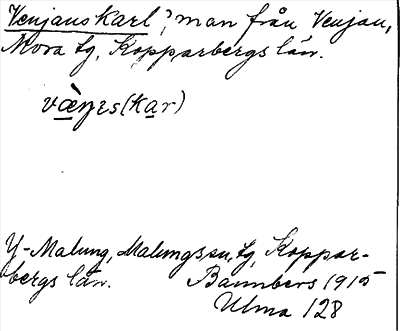 Venjanskarl, man från Venjan,
Mora tg, Kopparbergs län.
væ̀ŋɛs(kar)
Y-Malung, Malungs sn, tg, Koppar-
bergs län. Bannbers 1915
Ulma 128